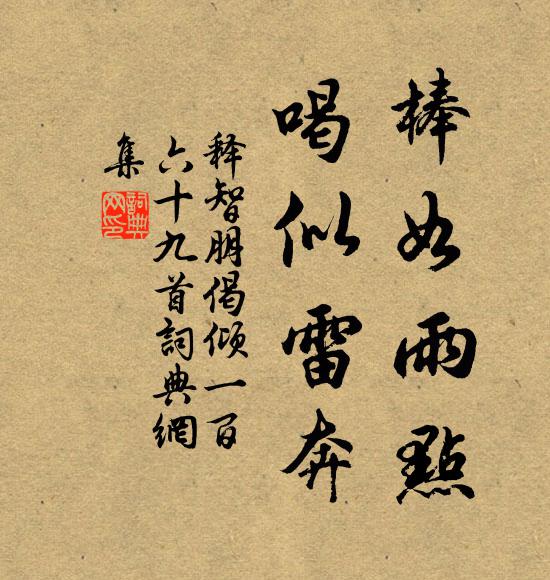 棒如雨點
喝似雷奔
释智朋偈倾一百
六十九首詞典網
集
詞典
网印